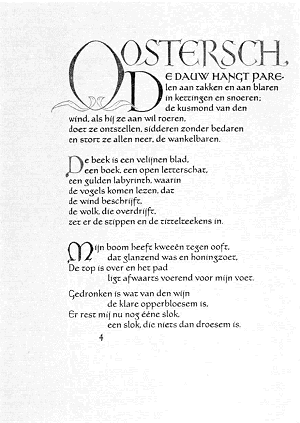 OOSTERSCH,
DE DAUW HANGT PARE-
len aan takken en aan blaren
in kettingen en snoeren;
de kusmond van den
wind, als hij ze aan wil roeren,
doet ze ontstellen, sidderen zonder bedaren
en stort ze allen neer, de wankelbaren.
De beek is een velijnen blad,
een boek, een open letterschat,
een gulden labyrinth, waarin
de vogels komen lezen, dat
de wind beschrijft,
de wolk, die overdrijft,
zet er de stippen en de tittelteekens in.
Mijn boom heeft kweeën tegen ooft,
dat glanzend was en honingzoet,
De top is over en het pad
ligt afwaarts voerend voor mijn voet.
Gedronken is wat van den wijn
de klare opperbloesem is.
Er rest mij nu nog ééne slok,
een slok, die niets dan droesem is.
4